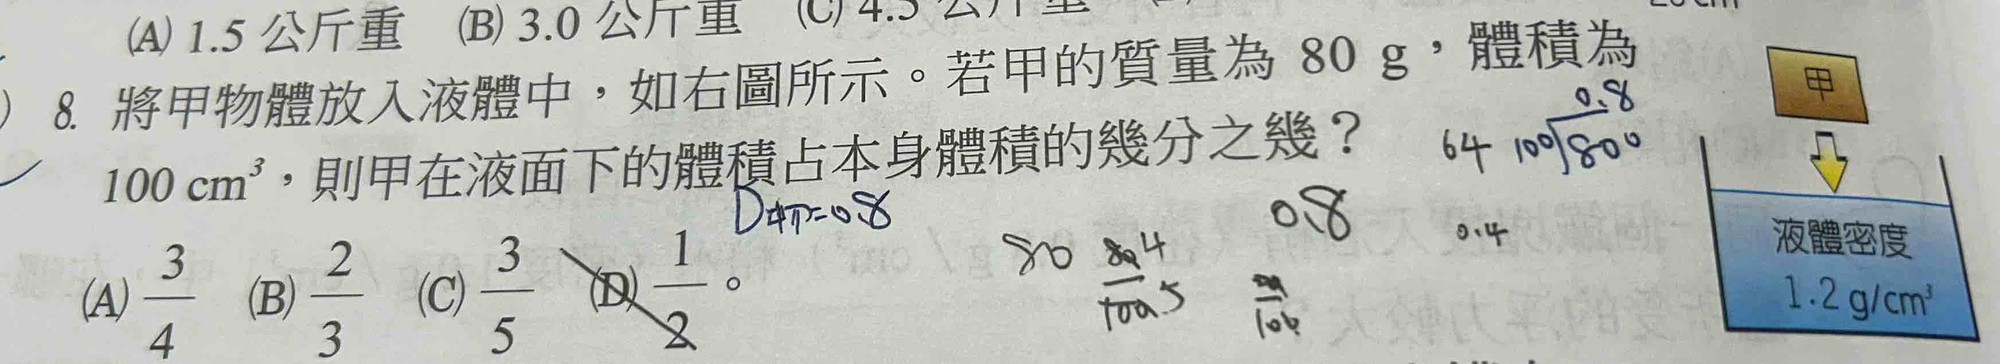 (A) 1.5 公斤重 (B) 3.0 公斤重 (C) 4.5 公斤重
8. 將甲物體放入液體中,如右圖所示。若甲的質量為 80 g,體積為
100 cm³,則甲在液面下的體積占本身體積的幾分之幾?
(A) 3/4 (B) 2/3 (C) 3/5 (D) 1/2。
D甲=0.8
80
4
5
0.8
100
0.4
64
0.8
100)800
甲
液體密度
1.2 g/cm³